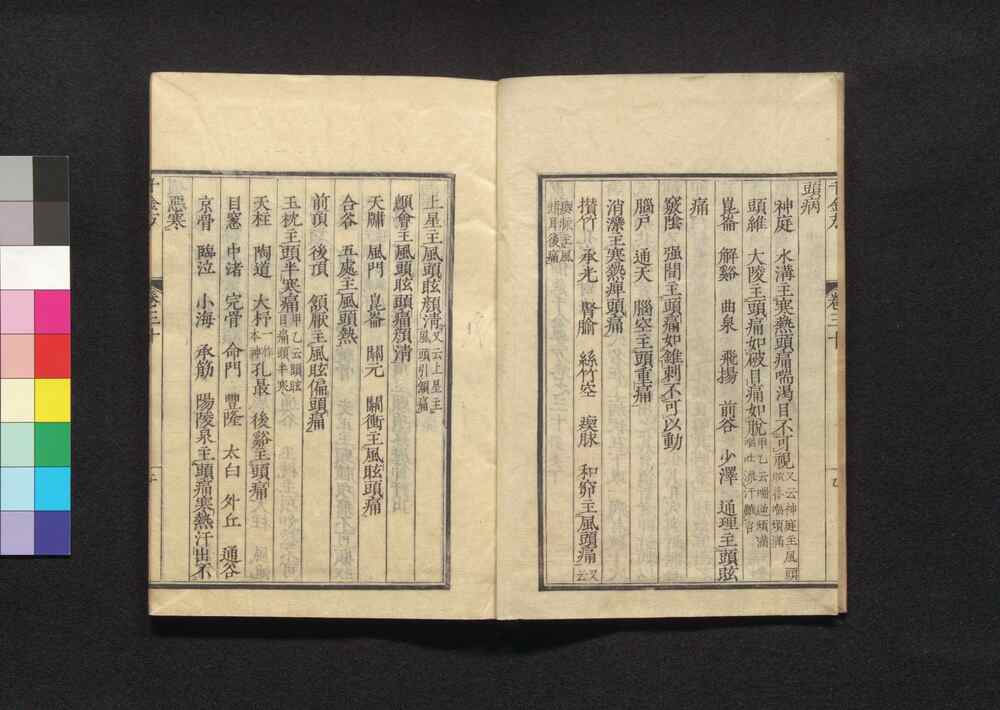 頭病
神庭 水溝主寒熱頭痛喘渴目不可視又云神庭主風頭眩善嘔煩滿
頭維 大陵主頭痛如破目痛如脫甲乙云喘逆煩滿嘔吐流汗難言
崑崙 解谿 曲泉 飛揚 前谷 少澤 通理主頭眩
痛
竅陰 强間主頭痛如錐刺不可以動
腦戶 通天 腦空主頭重痛
消濼主寒熱痺頭痛
攢竹 承光 腎腧 絲竹空 瘈脈 和窌主風頭痛又云
瘈脈主風頭耳後痛
上星主風頭眩顏清又云上星主風頭引頷痛
顖會主風頭眩頭痛顏清
天牖 風門 崑崙 關元 關衝主風眩頭痛
合谷 五處主風頭熱
前頂 後頂 頷厭主風眩偏頭痛
玉枕主頭半寒痛甲乙云頭眩目痛頭半寒
天柱 陶道 大杼一作本神孔最 後谿主頭痛
目窓 中渚 完骨 命門 豐隆 太白 外丘 通谷
京骨 臨泣 小海 承筋 陽陵泉主頭痛寒熱汗出不
惡寒
卷三十